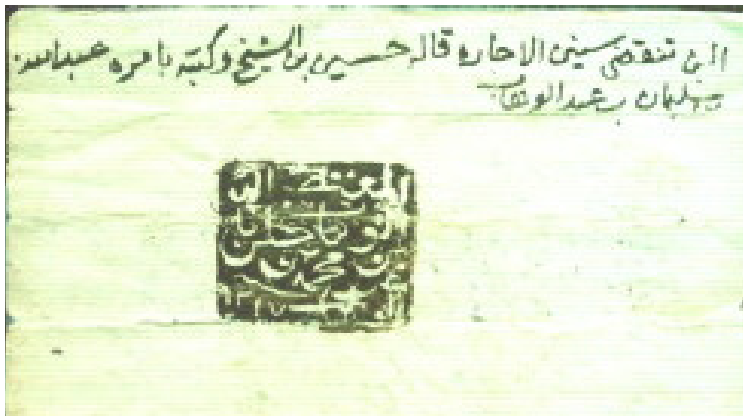 الى تنقضي سنين الاجاره قاله حسين بن الشيخ وكتبه بامره عبدالله بن
سليمان بن عبدالوهاب
حسين
بن محمد بن